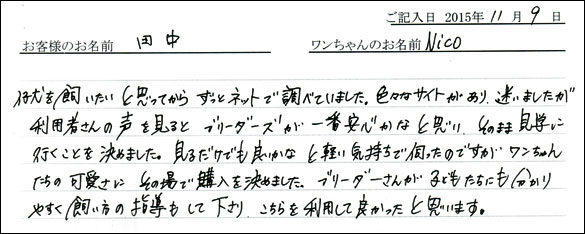 ご記入日 2015年 11月 9日
お客様のお名前 田中 ワンちゃんのお名前 Nico
仔犬を飼いたいと思ってからずっとネットで調べていました。色々なサイトがあり、迷いましたが
利用者さんの声を見ると ブリーダーズが一番安心かなと思い、そのまま見学に
行くことを決めました。見るだけでも良いかなと軽い気持ちで伺ったのですが ワンちゃん
たちの可愛さに その場で購入を決めました。ブリーダーさんが子どもたちにも分かり
やすく飼い方の指導もして下さり、こちらを利用して良かったと思います。